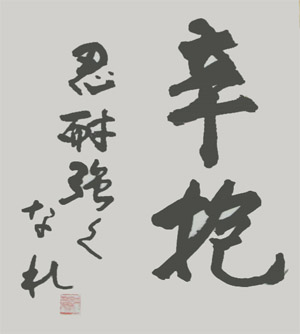 辛抱
忍耐強く
なれ